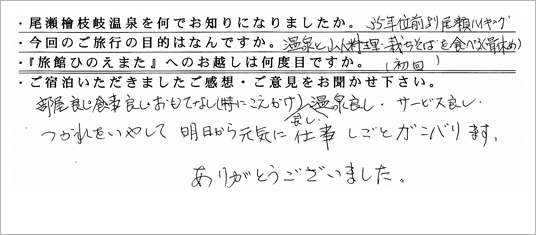 ・尾瀬檜枝岐温泉を何でお知りになりましたか。 35年位前より尾瀬ハイキング
・今回のご旅行の目的はなんですか。温泉と山人料理・裁ちそばを食べる(骨休め)
・『旅館ひのえまた』へのお越しは何度目ですか。 (初回)
・ご宿泊いただきましたご感想・ご意見をお聞かせ下さい。
部屋良し食事良しおもてなし(特にこえかけ)良し 温泉良し・サービス良し・
つかれをいやして 明日から元気に仕事 しごとガンバります。
ありがとうございました。